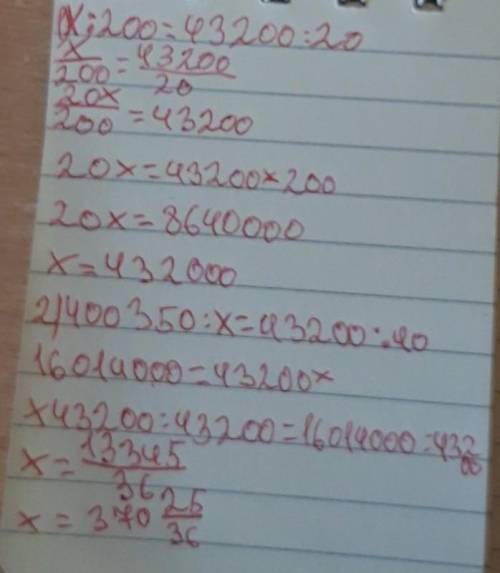 1)x:200=43200:20
x/200=43200/20
20x/200=43200
20x=43200×200
20x=8640000
x=432000
2)400350:x=43200:40
16014000=43200x
x43200:43200=16014000:43200
x=13345/36
x=370 25/36